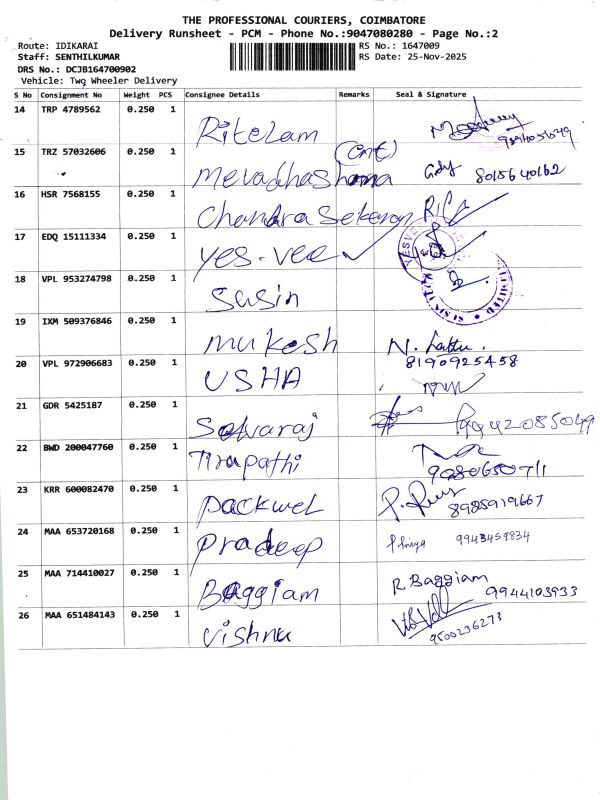 THE PROFESSIONAL COURIERS, COIMBATORE
Delivery Runsheet - PCM - Phone No.:9047080280 - Page No.:2
Route: IDIKARAI RS No.: 1647009
Staff: SENTHILKUMAR RS Date: 25-Nov-2025
DRS No.: DCJB164700902
Vehicle: Two Wheeler Delivery
S No Consignment No Weight PCS Consignee Details Remarks Seal & Signature
14 TRP 4789562 0.250 1 Ritelam
15 TRZ 57032606 0.250 1 Mevadhashana (Cmt) 8015640162
16 HSR 7568155 0.250 1 Chandra Sekaran
17 EDQ 15111334 0.250 1 Yes-vee
18 VPL 953274798 0.250 1 Susin
19 IXM 509376846 0.250 1 Mukesh 8190925458
20 VPL 972906683 0.250 1 USHA
21 GDR 5425187 0.250 1 Selvaraj 9942085049
22 BWD 200047760 0.250 1 Tirupathi 9080650711
23 KRR 600082470 0.250 1 Packwel 8925919667
24 MAA 653720168 0.250 1 Pradeep Priya 9943459834
25 MAA 714410027 0.250 1 Baggiam R Baggiam 9944103933
26 MAA 651484143 0.250 1 Vishnu 9500236273